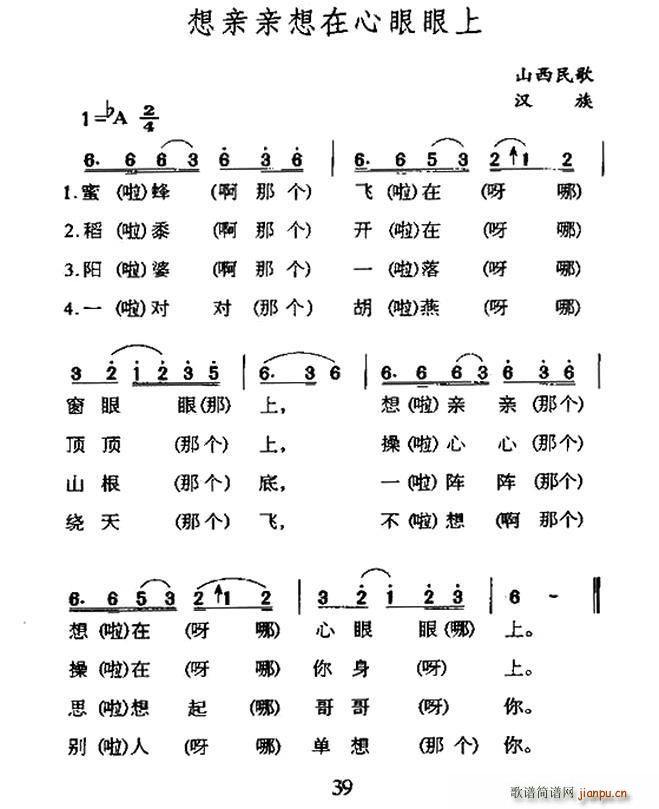 想亲亲想在心眼眼上
山西民歌
汉 族
1=♭A 2/4
6· 6 6 3 6 3 6 | 6· 6 5 3 2 ↑1 2 |
1.蜜(啦)蜂 (啊那个) 飞(啦)在(呀 哪)
2.稻(啦)黍 (啊那个) 开(啦)在(呀 哪)
3.阳(啦)婆 (啊那个) 一(啦)落(呀 哪)
4.一(啦)对 对(那个) 胡(啦)燕(呀 哪)
3 2 1 2 3 5 | 6· 3 6 | 6· 6 6 3 6 3 6 |
窗眼 眼(那)上, 想(啦)亲 亲(那个)
顶顶 (那个)上, 操(啦)心 心(那个)
山根 (那个)底, 一(啦)阵 阵(那个)
绕天 (那个)飞, 不(啦)想 (啊那个)
6· 6 5 3 2 ↑1 2 | 3 2 1 2 3 | 6 - ‖
想(啦)在 (呀 哪) 心眼 眼(哪) 上。
操(啦)在 (呀 哪) 你身 (呀) 上。
思(啦)想 起 (哪) 哥哥 (呀) 你。
别(啦)人 (呀 哪) 单想 (那个)你。
39
歌谱简谱网 jianpu.cn